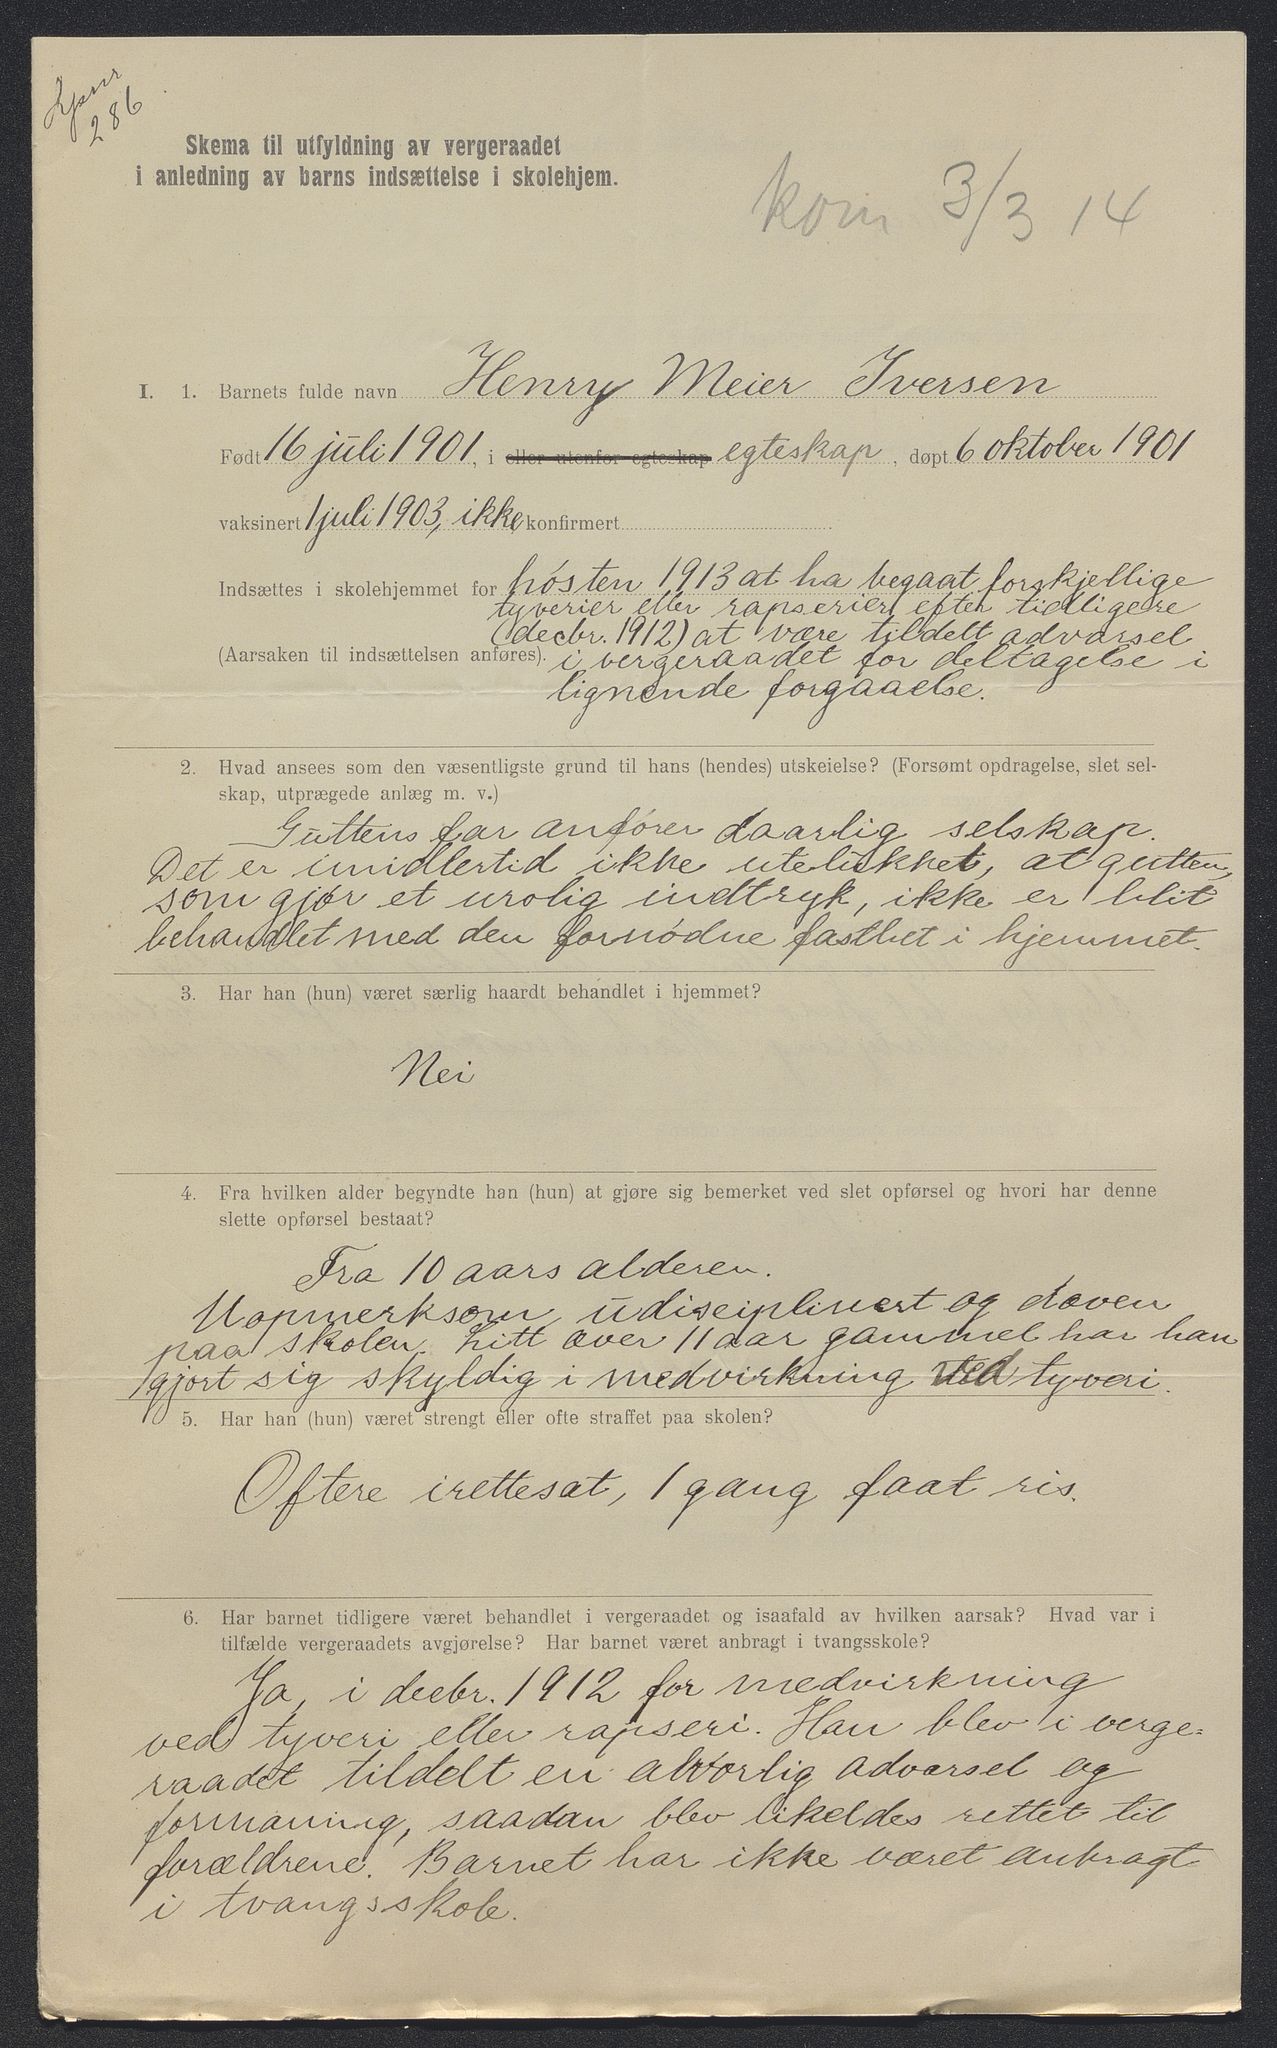 Lpnr
286
Skema til utfyldning av vergeraadet
i anledning av barns indsættelse i skolehjem.
kom 3/3 14
I. 1. Barnets fulde navn Henry Meier Iversen
Født 16 juli 1901, i eller utenfor egteskap egteskap, døpt 6 oktober 1901
vaksinert 1 juli 1903, ikke konfirmert
Indsættes i skolehjemmet for høsten 1913 at ha begaat forskjellige
tyverier eller rapserier efter tidligere
(decbr. 1912) at være tildelt advarsel
(Aarsaken til indsættelsen anføres). i vergeraadet for deltagelse i
lignende forgaaelse.
2. Hvad ansees som den væsentligste grund til hans (hendes) utskeielse? (Forsømt opdragelse, slet sel-
skap, utprægede anlæg m. v.)
Guttens far anfører daarlig selskap.
Det er imidlertid ikke utelukket, at gutten,
som gjør et urolig indtryk, ikke er blit
behandlet med den fornødne fasthet i hjemmet.
3. Har han (hun) været særlig haardt behandlet i hjemmet?
Nei
4. Fra hvilken alder begyndte han (hun) at gjøre sig bemerket ved slet opførsel og hvori har denne
slette opførsel bestaat?
Fra 10 aars alderen.
Uopmerksom, udisciplinert og doven
paa skolen. Litt over 11 aar gammel har han
gjort sig skyldig i medvirkning ved tyveri.
5. Har han (hun) været strengt eller ofte straffet paa skolen?
Oftere irettesat, 1 gang faat ris.
6. Har barnet tidligere været behandlet i vergeraadet og isaafald av hvilken aarsak? Hvad var i
tilfælde vergeraadets avgjørelse? Har barnet været anbragt i tvangsskole?
Ja, i decbr. 1912 for medvirkning
ved tyveri eller rapseri. Han blev i verge=
raadet tildelt en alvorlig advarsel og
formaning, saadan blev likeldes rettet til
forældrene. Barnet har ikke været anbragt
i tvangsskole.